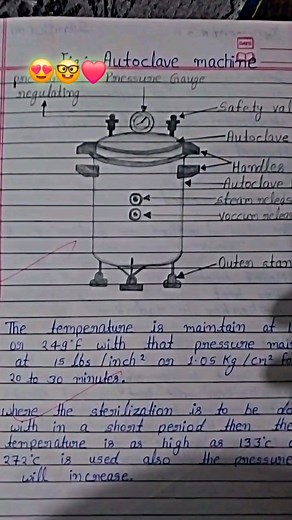 Autoclave machine
Pressure Gauge
regulating
Safety val
Autoclave
Handles
Autoclave
steam releas
voccum releas
Outer stan
The temperature is maintain at 1
or 249°F with that pressure mai
at 15 lbs /inch² or 1.05 Kg/cm² fo
20 to 30 minutes.
where the sterilization is to be do
with in a short period then the
temperature is as high as 133°c
272°c is used also the pressure
will increase.